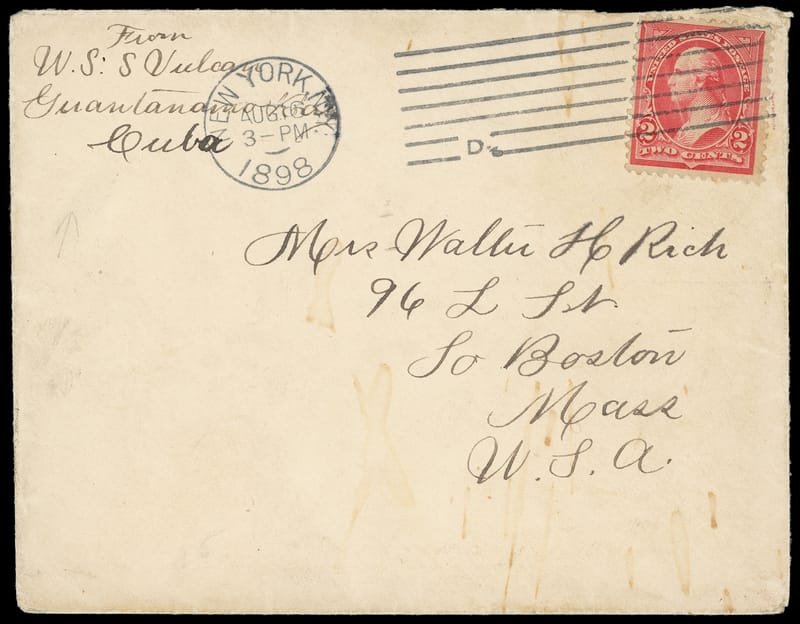 From
U.S.S Vulcan
Guantanamo
Cuba
NEW YORK, N.Y.
AUG 16
3-PM
1898
D
UNITED STATES POSTAGE
2 2
TWO CENTS
Mrs Walter H Rich
96 L St
So Boston
Mass
U.S.A.